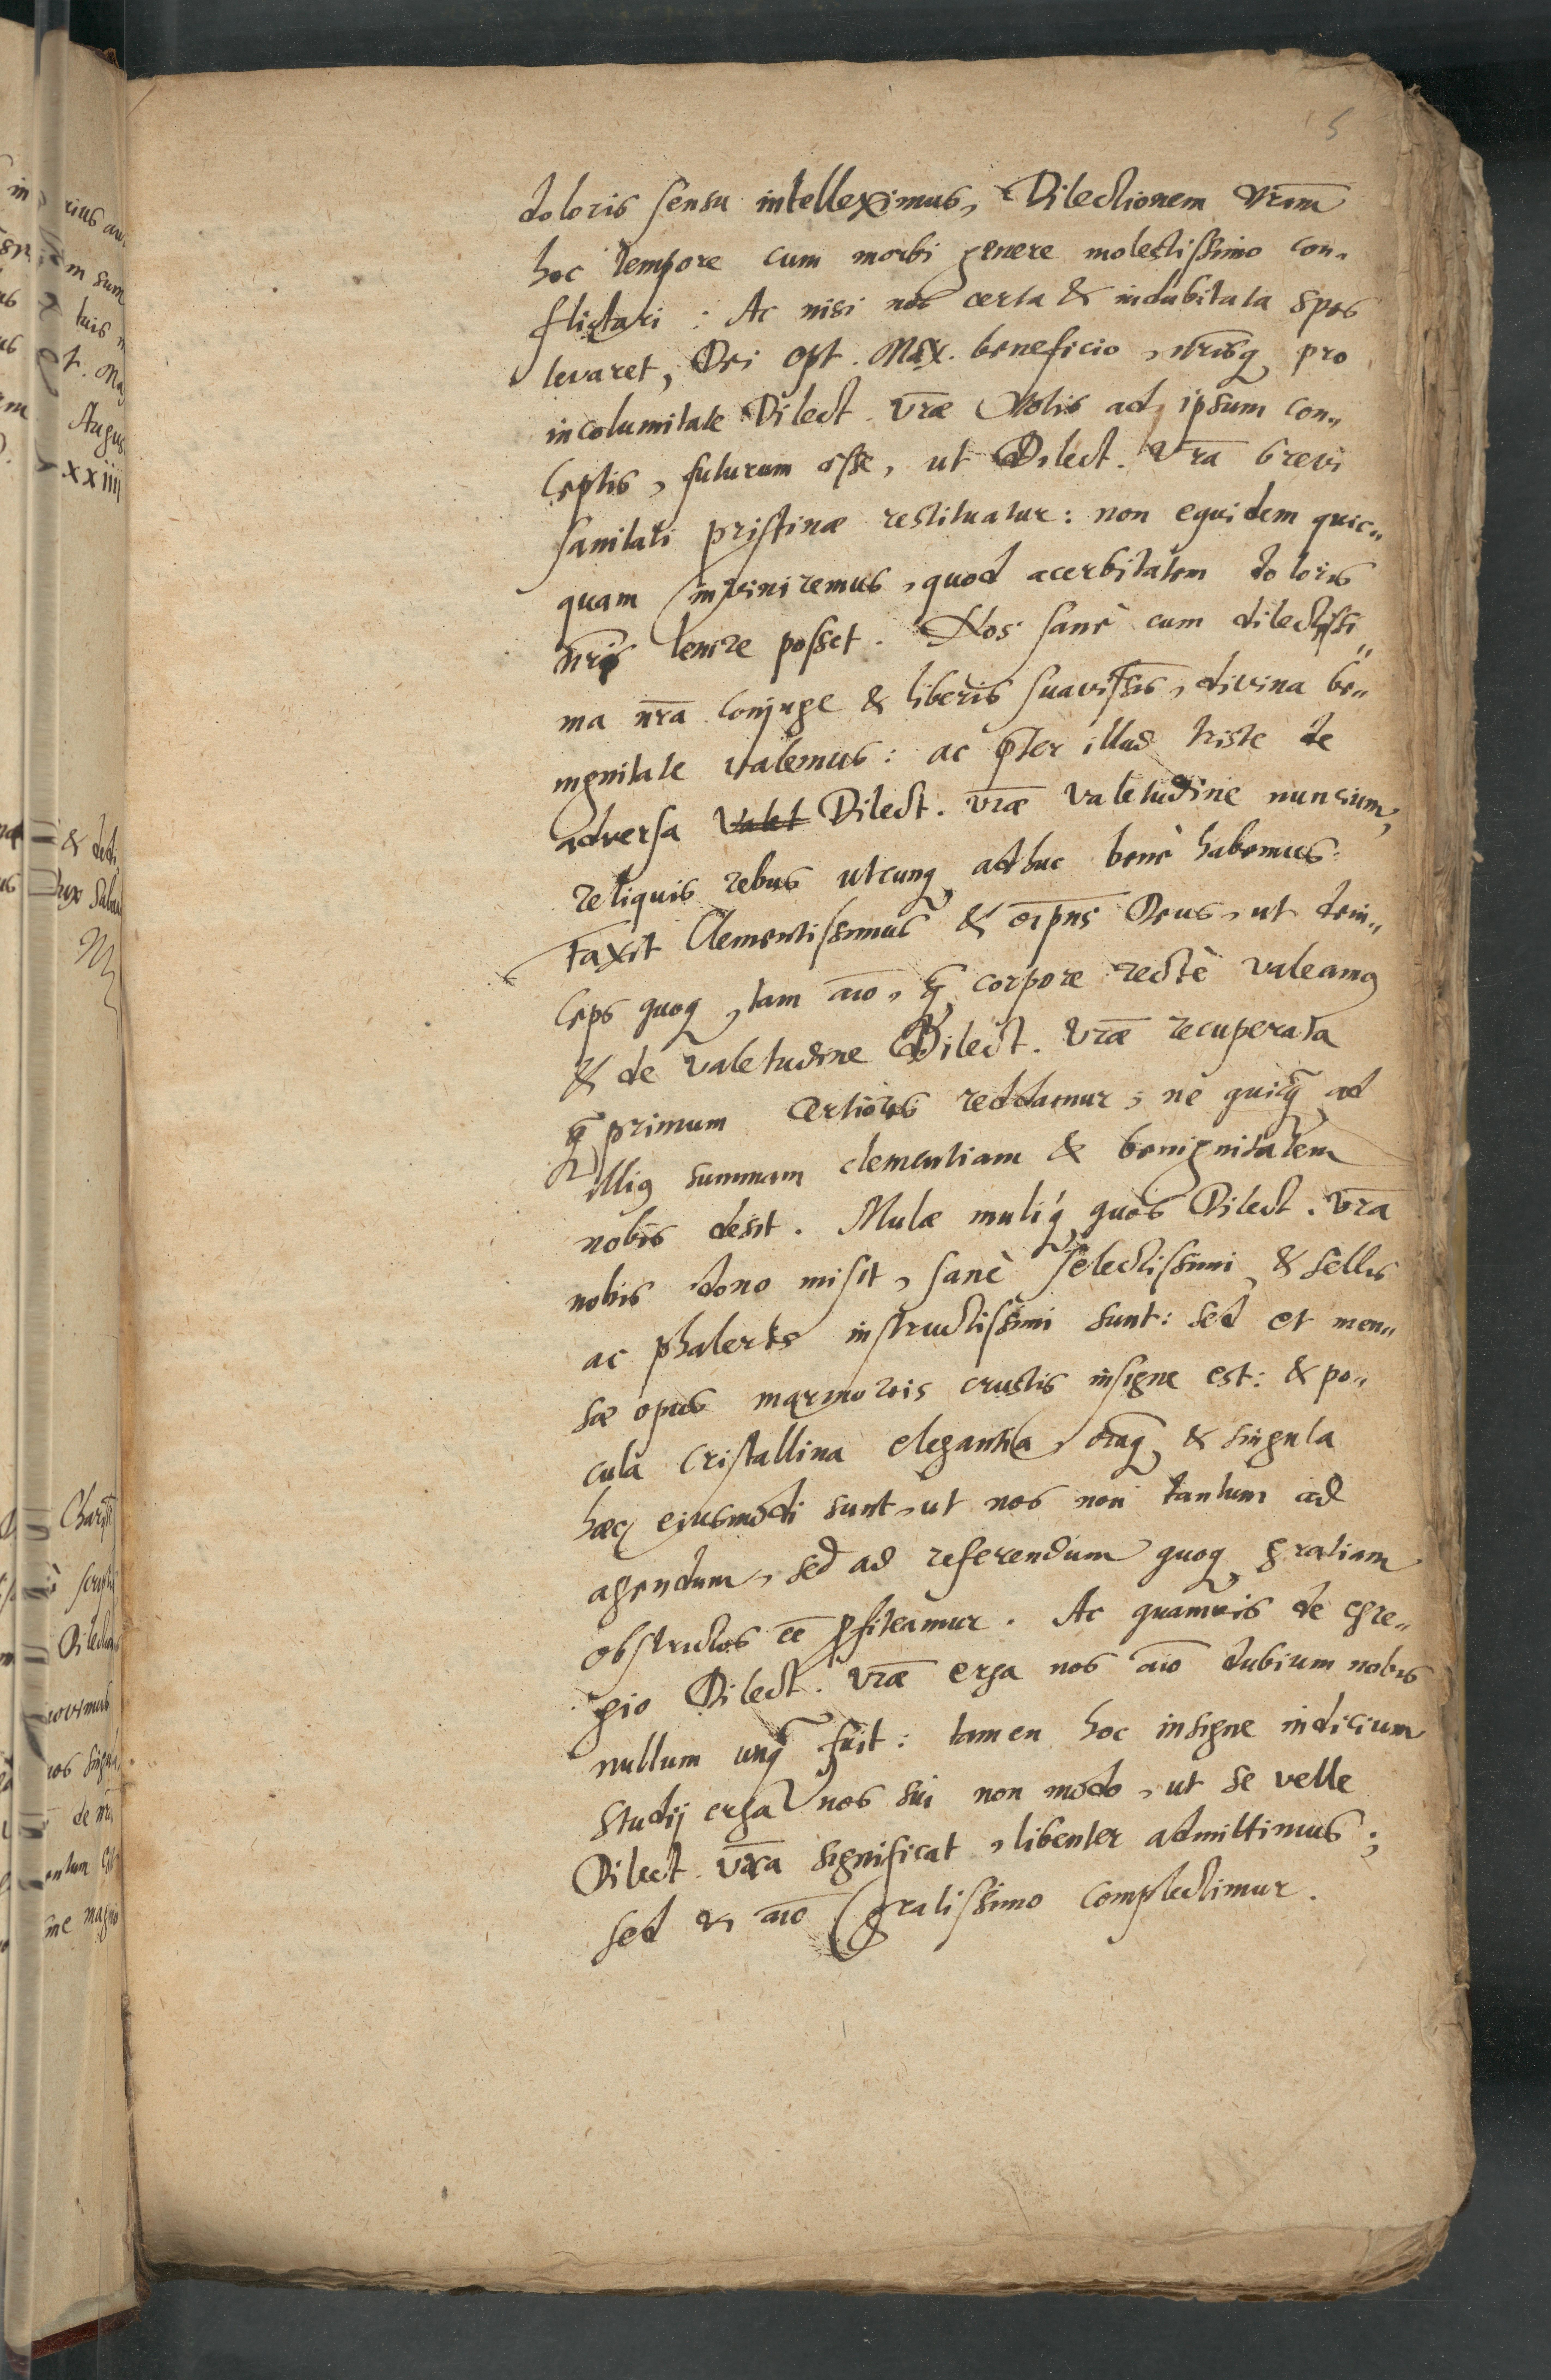 5
doloris sensu intelleximus, Dilectionem Vr̃am
hoc tempore cum morbi genere molestissimo con„
flictari : Ac nisi nos certa & indubitata spes
levaret, Dei Opt. Max. beneficio, nr̃isq̢ pro
incolumitate Dilect. Vr̃æ Votis ad ipsum con„
ceptis, futurum esse, ut Dilect. Vr̃a brevi
sanitati pristinæ restituatur: non equidem quic„
quam inveniremus, quod acerbitatem doloris
nr̃i lenire posset. Nos sanè cum dilectissi„
ma nr̃a conjuge & liberis suavissis̃, divina be„
nignitate valemus: ac p̃ter illud triste de
adversa Valet Dilect. Vr̃æ Valetudine nuncium,
reliquis rebus utcunq̢ adhuc benè habemus.
Faxit Clementissimus & oı̃pns Deus, ut dein„
ceps quoq̢, tam aı̃o, q̃ corpore rectè valeamꝰ
& de valetudine Dilect. Vr̃æ recuperata
q̃ primum certiores reddamur; ne quicq̃ ad
illiꝰ summam clementiam & benignitatem
nobis desit. Mulæ muliq̢ quos Dilect. Vr̃a
nobis dono misit, sanè selectissimi, & sellis
ac phaleris instructissimi sunt: sed et men„
sæ opus marmoreis crustis insigne est: & po„
cula cristallina elegantia, oı̃aq̢ & singula
hæc ejusmodi sunt, ut nos non tantum ad
agendum, sed ad referendum quoq̢ gratiam
obstrictos ee̅ ꝓfiteamur. Ac quamvis de egre„
gio Dilect. Vr̃æ erga nos aı̃o dubium nobis
nullum unq̃ fuit: tamen hoc insigne indicium
studij erga nos sui non modo, ut se velle
Dilect. Vr̃a significat, libenter admittimus;
sed & aı̃o gratissimo complectimur.